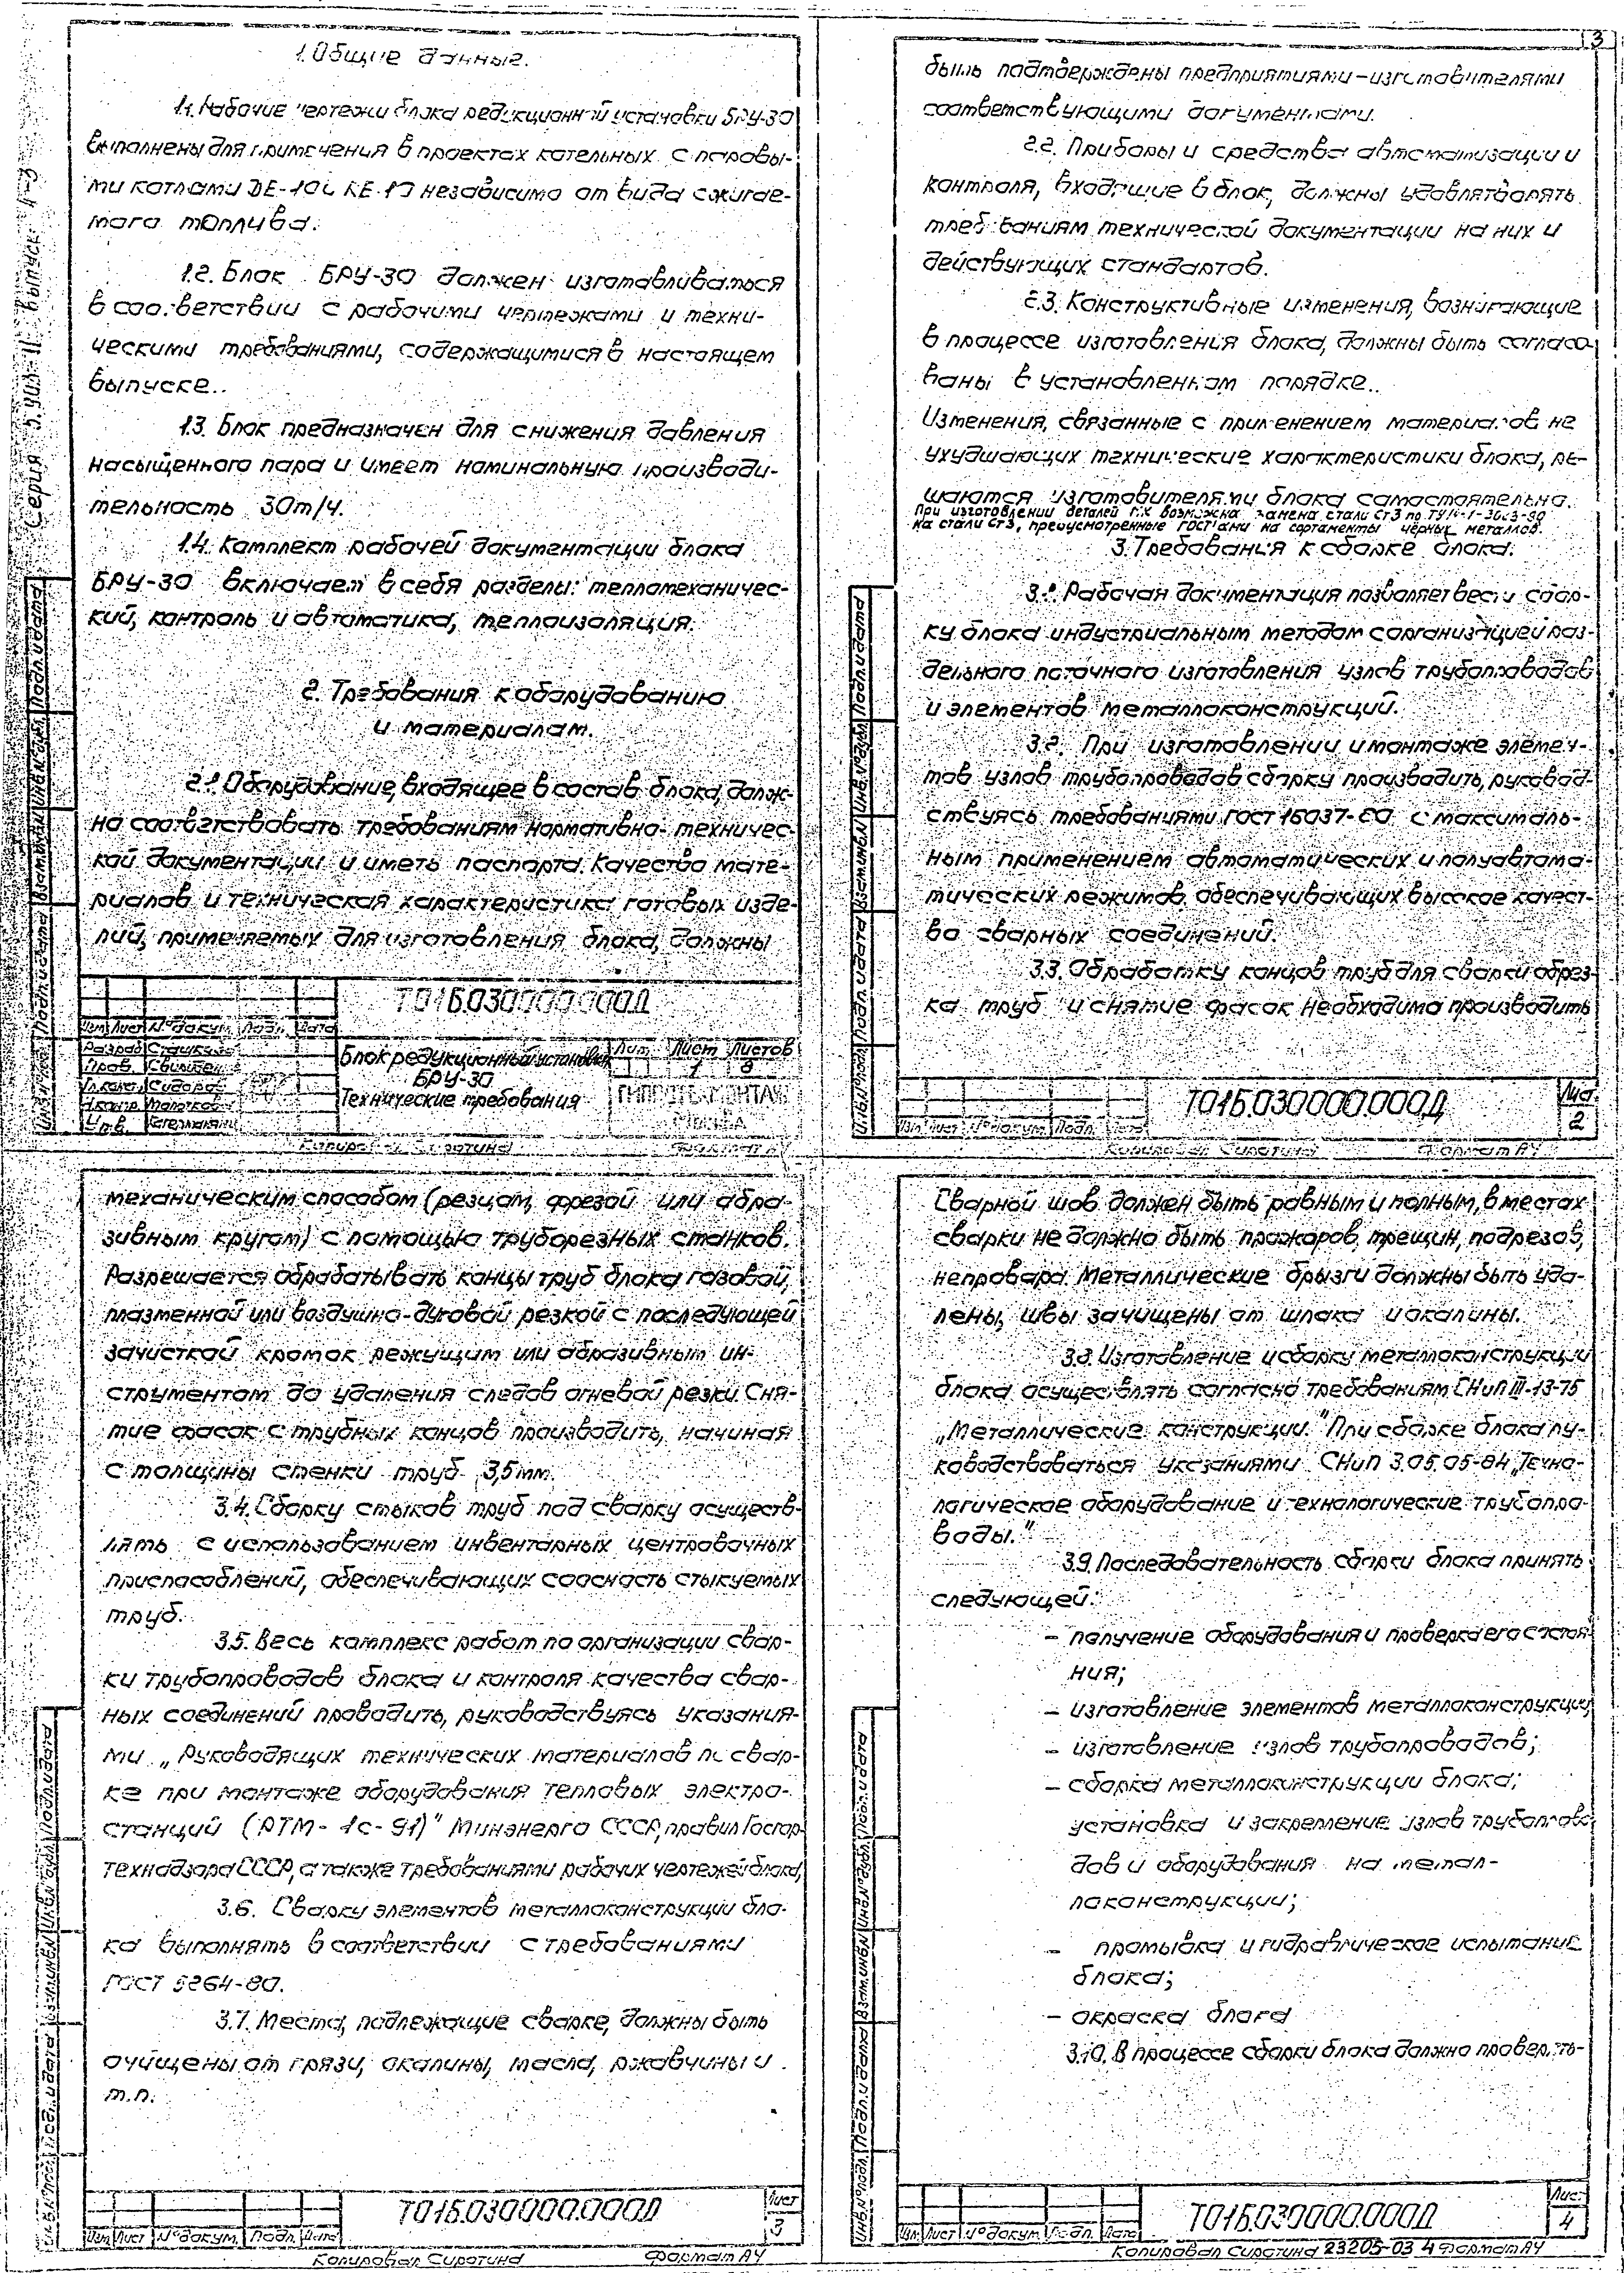 1. Общие данные.
1.1. Рабочие чертежи блока редукционной установки БРУ-30
выполнены для применения в проектах котельных с паровы-
ми котлами ДЕ-10 и КЕ-10 независимо от вида сжигае-
мого топлива.
1.2. Блок БРУ-30 должен изготавливаться
в соответствии с рабочими чертежами и техни-
ческими требованиями, содержащимися в настоящем
выпуске..
1.3. Блок предназначен для снижения давления
насыщенного пара и имеет номинальную производи-
тельность 30т/ч.
1.4. Комплект рабочей документации блока
БРУ-30 включает в себя разделы: тепломеханичес-
кий, контроль и автоматика, теплоизоляция.
2. Требования к оборудованию
и материалам.
2.1. Оборудование, входящее в состав блока, долж-
но соответствовать требованиям нормативно-техничес-
кой документации и иметь паспорта. Качество мате-
риалов и техническая характеристика готовых изде-
лий, применяемых для изготовления блока, должны
Т01Б.030000.000Д
Изм. Лист № докум. Подп. Дата
Разраб.
Пров.
Н.контр.
Утв.
Блок редукционной установки
БРУ-30
Технические требования
Лит. Лист Листов
1 8
Москва
Копировал Сиротина Формат А4
Серия 5. выпуск
Подп. и дата
Взам.инв.№ Инв.№ дубл.
3
быть подтверждены предприятиями-изготовителями
соответствующими документами.
2.2. Приборы и средства автоматизации и
контроля, входящие в блок, должны удовлетворять
требованиям технической документации на них и
действующих стандартов.
2.3. Конструктивные изменения, возникающие
в процессе изготовления блока, должны быть согласо-
ваны в установленном порядке..
Изменения, связанные с применением материалов не
ухудшающих технические характеристики блока, ре-
шаются изготовителями блока самостоятельно.
При изготовлении деталей возможна замена стали Ст3 по
на стали Ст3, предусмотренные ГОСТами на сортаменты чёрных металлов.
3. Требования к сборке блока.
3.1. Рабочая документация позволяет вести сбор-
ку блока индустриальным методом с организацией раз-
дельного поточного изготовления узлов трубопроводов
и элементов металлоконструкций.
3.2. При изготовлении и монтаже элемен-
тов узлов трубопроводов сборку производить, руковод-
ствуясь требованиями ГОСТ 16037-80 с максималь-
ным применением автоматических и полуавтома-
тических режимов, обеспечивающих высокое качест-
во сварных соединений.
3.3. Обработку концов труб для сварки обрез-
ка труб и снятие фасок необходимо производить
Т01Б.030000.000Д
Лист
2
Изм. Лист № докум. Подп. Дата
Копировал Сиротина Формат А4
механическим способом (резцом, фрезой или абра-
зивным кругом) с помощью труборезных станков.
Разрешается обрабатывать концы труб блока газовой,
плазменной или воздушно-дуговой резкой с последующей
зачисткой кромок режущим или абразивным ин-
струментом до удаления следов огневой резки. Сня-
тие фасок с трубных концов производить, начиная
с толщины стенки труб 3,5мм.
3.4. Сборку стыков труб под сварку осуществ-
лять с использованием инвентарных центровочных
приспособлений, обеспечивающих соосность стыкуемых
труб.
3.5. Весь комплекс работ по организации свар-
ки трубопроводов блока и контроля качества свар-
ных соединений проводить, руководствуясь указания-
ми „Руководящих технических материалов по свар-
ке при монтаже оборудования тепловых электро-
станций (РТМ-1с-91)" Минэнерго СССР, правил Госгор-
технадзора СССР, а также требованиями рабочих чертежей блока,
3.6. Сварку элементов металлоконструкции бло-
ка выполнять в соответствии с требованиями
ГОСТ 5264-80.
3.7. Места, подлежащие сварке, должны быть
очищены от грязи, окалины, масла, ржавчины и
т.п.
Т01Б.030000.000Д
Лист
3
Изм. Лист № докум. Подп. Дата
Копировал Сиротина Формат А4
Сварной шов должен быть равным и полным, в местах
сварки не должно быть прожаров, трещин, подрезов,
непровара. Металлические брызги должны быть уда-
лены, швы зачищены от шлака и окалины.
3.8. Изготовление и сборку металлоконструкции
блока осуществлять согласно требованиям СНиП III-18-75
„Металлические конструкции." При сборке блока ру-
ководствоваться указаниями СНиП 3.05.05-84 „Техно-
логическое оборудование и технологические трубопро-
воды."
3.9. Последовательность сборки блока принять
следующей:
– получение оборудования и проверка его состоя-
ния;
– изготовление элементов металлоконструкции
– изготовление узлов трубопроводов;
– сборка металлоконструкции блока;
установка и закрепление узлов трубопрово-
дов и оборудования на метал-
локонструкции;
– промывка и гидравлическое испытание
блока;
– окраска блока
3.10. В процессе сборки блока должно проверять-
Т01Б.030000.000Д
Лист
4
Изм. Лист № докум. Подп. Дата
Копировал Сиротина 23205-03 4 Формат А4